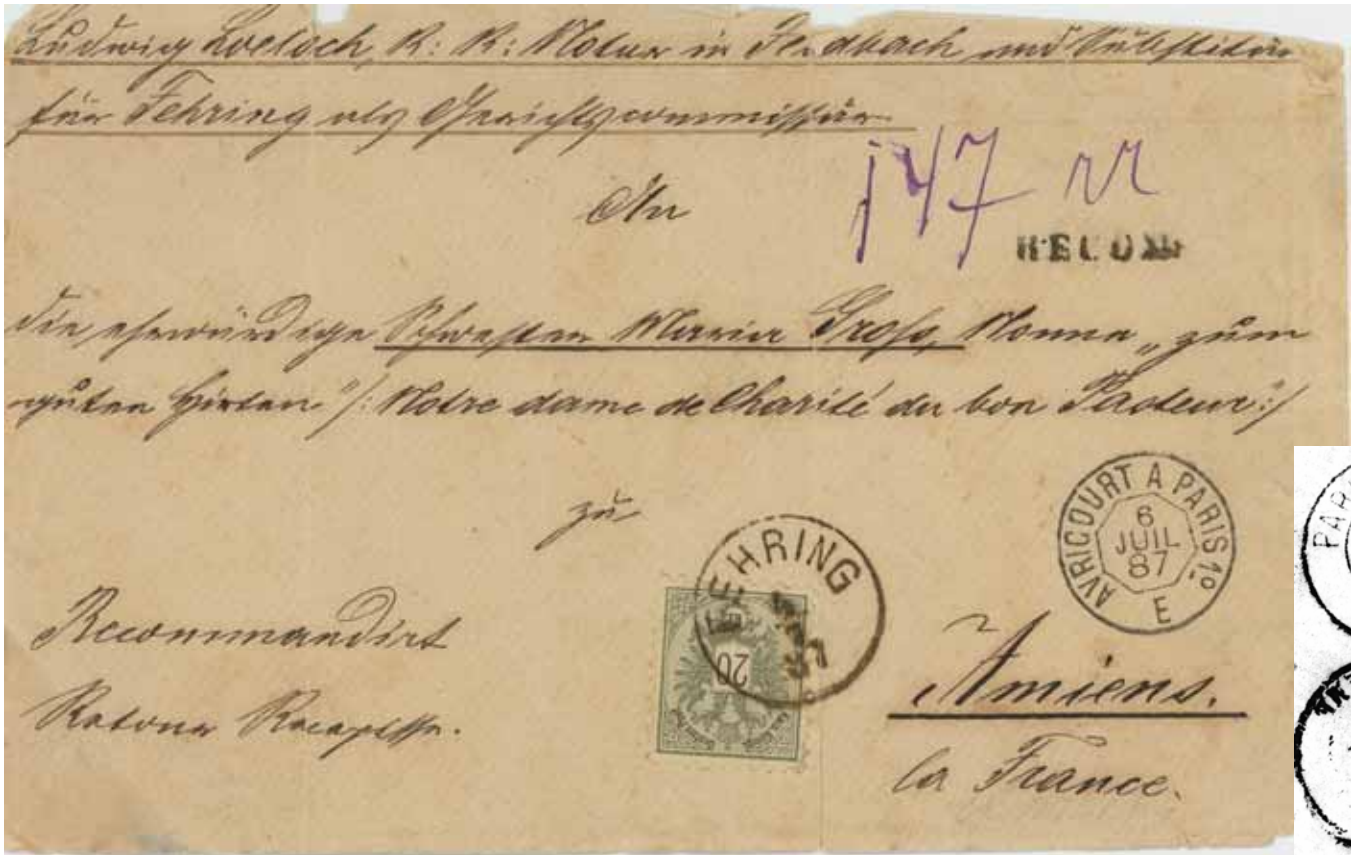 Ludwig K: K: Notar in Feldbach und Substitut
für Fehring als Gerichtscommissär
An
147
RECOM
die ehrwürdige Schwester Maria Groß, Nonne „zum
guten Hirten" /: Notre dame de Charité du bon Pasteur :/
zu
AVRICOURT A PARIS 1º
6
JUIL
87
E
FEHRING
87
20
Recommandirt
Retour Recepisse.
Amiens.
la France.
PAR